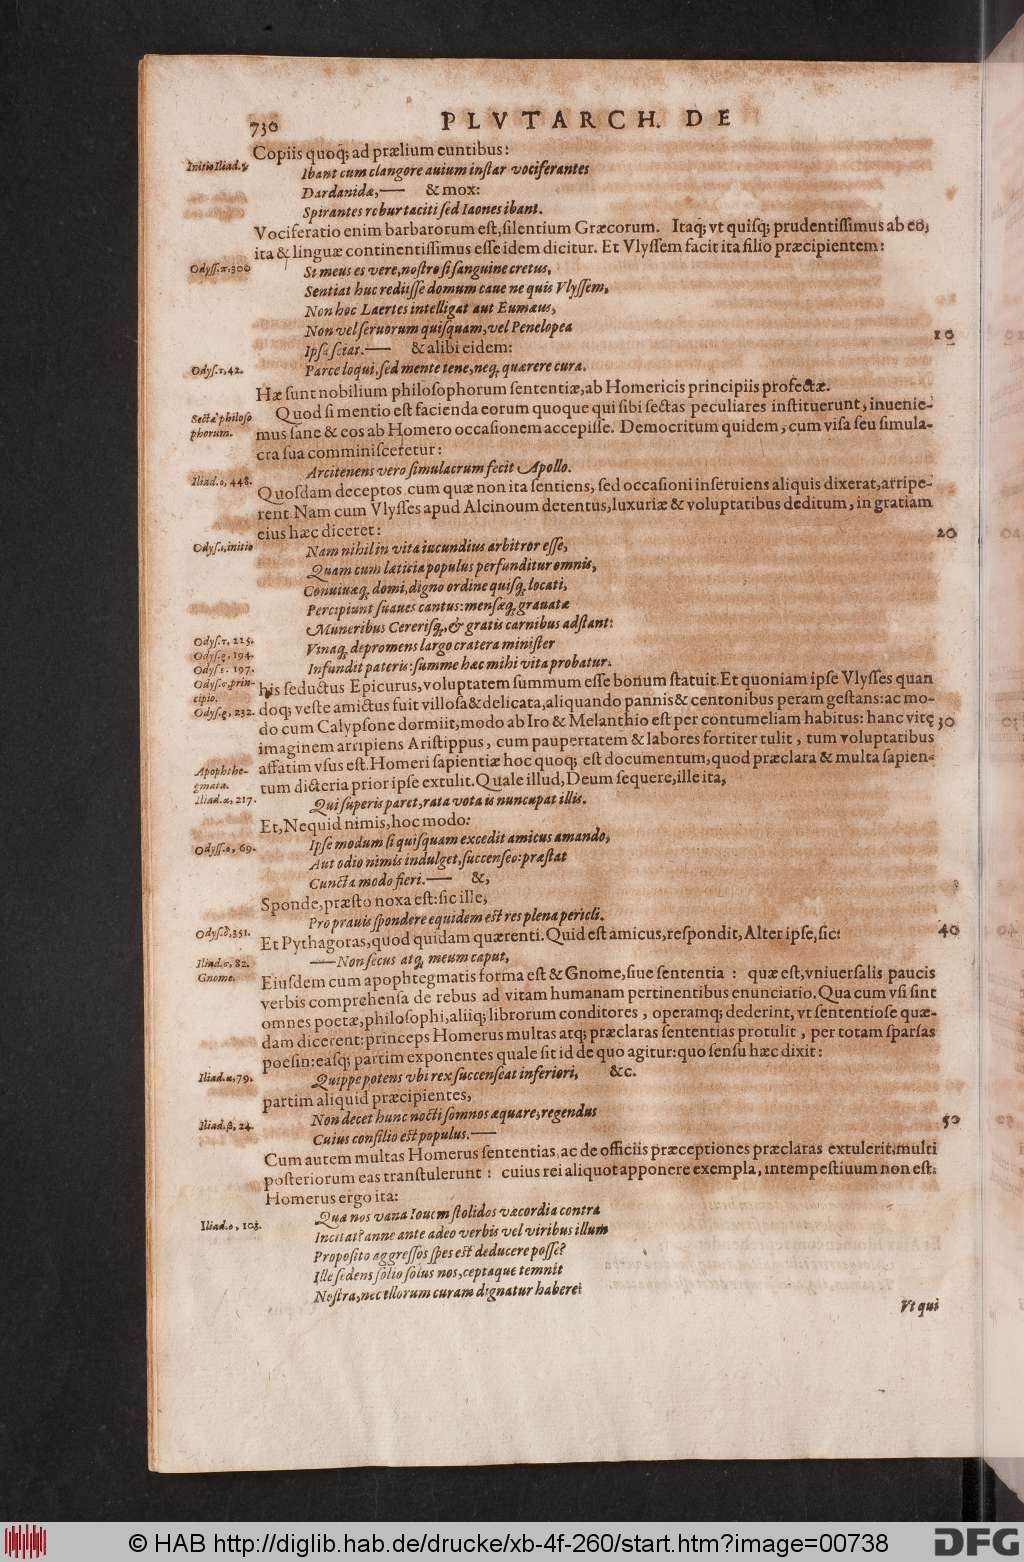 730
PLVTARCH. DE
Copiis quoq; ad prælium euntibus:
Initio Iliad. γ.
Ibant cum clangore auium instar vociferantes
Dardanidæ,— & mox:
Spirantes robur taciti sed Iaones ibant.
Vociferatio enim barbarorum est, silentium Græcorum. Itaq; vt quisq; prudentissimus ab eo,
ita & linguæ continentissimus esse idem dicitur. Et Vlyssem facit ita filio præcipientem:
Odyss. π. 300
Si meus es vere, nostro si sanguine cretus,
Sentiat huc rediisse domum caue ne quis Vlyssem,
Non hoc Laertes intelligat aut Eumæus,
Non vel seruorum quisquam, vel Penelopea
10
Ipsa sciat.— & alibi eidem:
Odys. τ, 42.
Parce loqui, sed mente tene, neq; quærere cura.
Hæ sunt nobilium philosophorum sententiæ, ab Homericis principiis profectæ.
Quod si mentio est facienda eorum quoque qui sibi sectas peculiares instituerunt, inuenie-
Sectæ philoso
phorum.
mus sane & eos ab Homero occasionem accepisse. Democritum quidem, cum visa seu simula-
cra sua comminisceretur:
Arcitenens vero simulacrum fecit Apollo.
Iliad. ε, 448.
Quosdam deceptos cum quæ non ita sentiens, sed occasioni inseruiens aliquis dixerat, arripe-
rent. Nam cum Vlysses apud Alcinoum detentus, luxuriæ & voluptatibus deditum, in gratiam
eius hæc diceret:
20
Odys. ι, initio
Nam nihil in vita iucundius arbitror esse,
Quam cum lætitia populus perfunditur omnis,
Conuiuæq; domi, digno ordine quisq; locati,
Percipiunt suaues cantus: mensæq; grauatæ
Muneribus Cererisq;, & gratis carnibus adstant:
Odys. τ, 225.
Vinaq; depromens largo cratera minister
Odys. ξ, 194.
Infundit pateris: summe hæc mihi vita probatur.
Odys. ε. 197.
Odys. σ, prin-
cipio.
his seductus Epicurus, voluptatem summum esse bonum statuit. Et quoniam ipse Vlysses quan
Odys. ρ, 232.
doq; veste amictus fuit villosa & delicata, aliquando pannis & centonibus peram gestans: ac mo-
do cum Calypsone dormiit, modo ab Iro & Melanthio est per contumeliam habitus: hanc vitę
30
imaginem arripiens Aristippus, cum paupertatem & labores fortiter tulit, tum voluptatibus
affatim vsus est. Homeri sapientiæ hoc quoq; est documentum, quod præclara & multa sapien-
Apophthe-
gmata.
tum dicteria prior ipse extulit. Quale illud, Deum sequere, ille ita,
Iliad. α, 217.
Qui superis paret, rata vota is nuncupat illis.
Et, Nequid nimis, hoc modo:
Odyss. ο, 69.
Ipse modum si quisquam excedit amicus amando,
Aut odio nimis indulget, succenseo: præstat
Cuncta modo fieri.— &,
Sponde, præsto noxa est: sic ille,
Pro prauis spondere equidem est res plena pericli.
Odys. θ, 351.
Et Pythagoras, quod quidam quærenti. Quid est amicus, respondit, Alter ipse, sic:
40
—Non secus atq; meum caput,
Iliad. σ, 82.
Gnome.
Eiusdem cum apophtegmatis forma est & Gnome, siue sententia: quæ est, vniuersalis paucis
verbis comprehensa de rebus ad vitam humanam pertinentibus enunciatio. Qua cum vsi sint
omnes poetæ, philosophi, aliiq; librorum conditores, operamq; dederint, vt sententiose quæ-
dam dicerent: princeps Homerus multas atq; præclaras sententias protulit, per totam sparsas
poesin: easq; partim exponentes quale sit id de quo agitur: quo sensu hæc dixit:
Iliad. α, 79.
Quippe potens vbi rex succenseat inferiori, &c.
partim aliquid præcipientes,
Iliad. β, 24.
Non decet hunc nocti somnos æquare, regendus
50
Cuius consilio est populus.—
Cum autem multas Homerus sententias, ac de officiis præceptiones præclaras extulerit, multi
posteriorum eas transtulerunt: cuius rei aliquot apponere exempla, intempestiuum non est.
Homerus ergo ita:
Iliad. ο, 103.
Quæ nos vana Iouem stolidos væcordia contra
Incitat? anne ante adeo verbis vel viribus illum
Proposito aggressos spes est deducere posse?
Ille sedens solio solus nos, ceptaque temnit
Nostra, nec vllorum curam dignatur habere:
Vt qui
© HAB http://diglib.hab.de/drucke/xb-4f-260/start.htm?image=00738
DFG